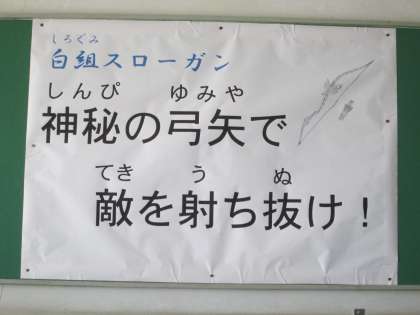 しろぐみ
白組スローガン
しんぴ ゆみや
神秘の弓矢で
てき う ぬ
敵を射ち抜け！